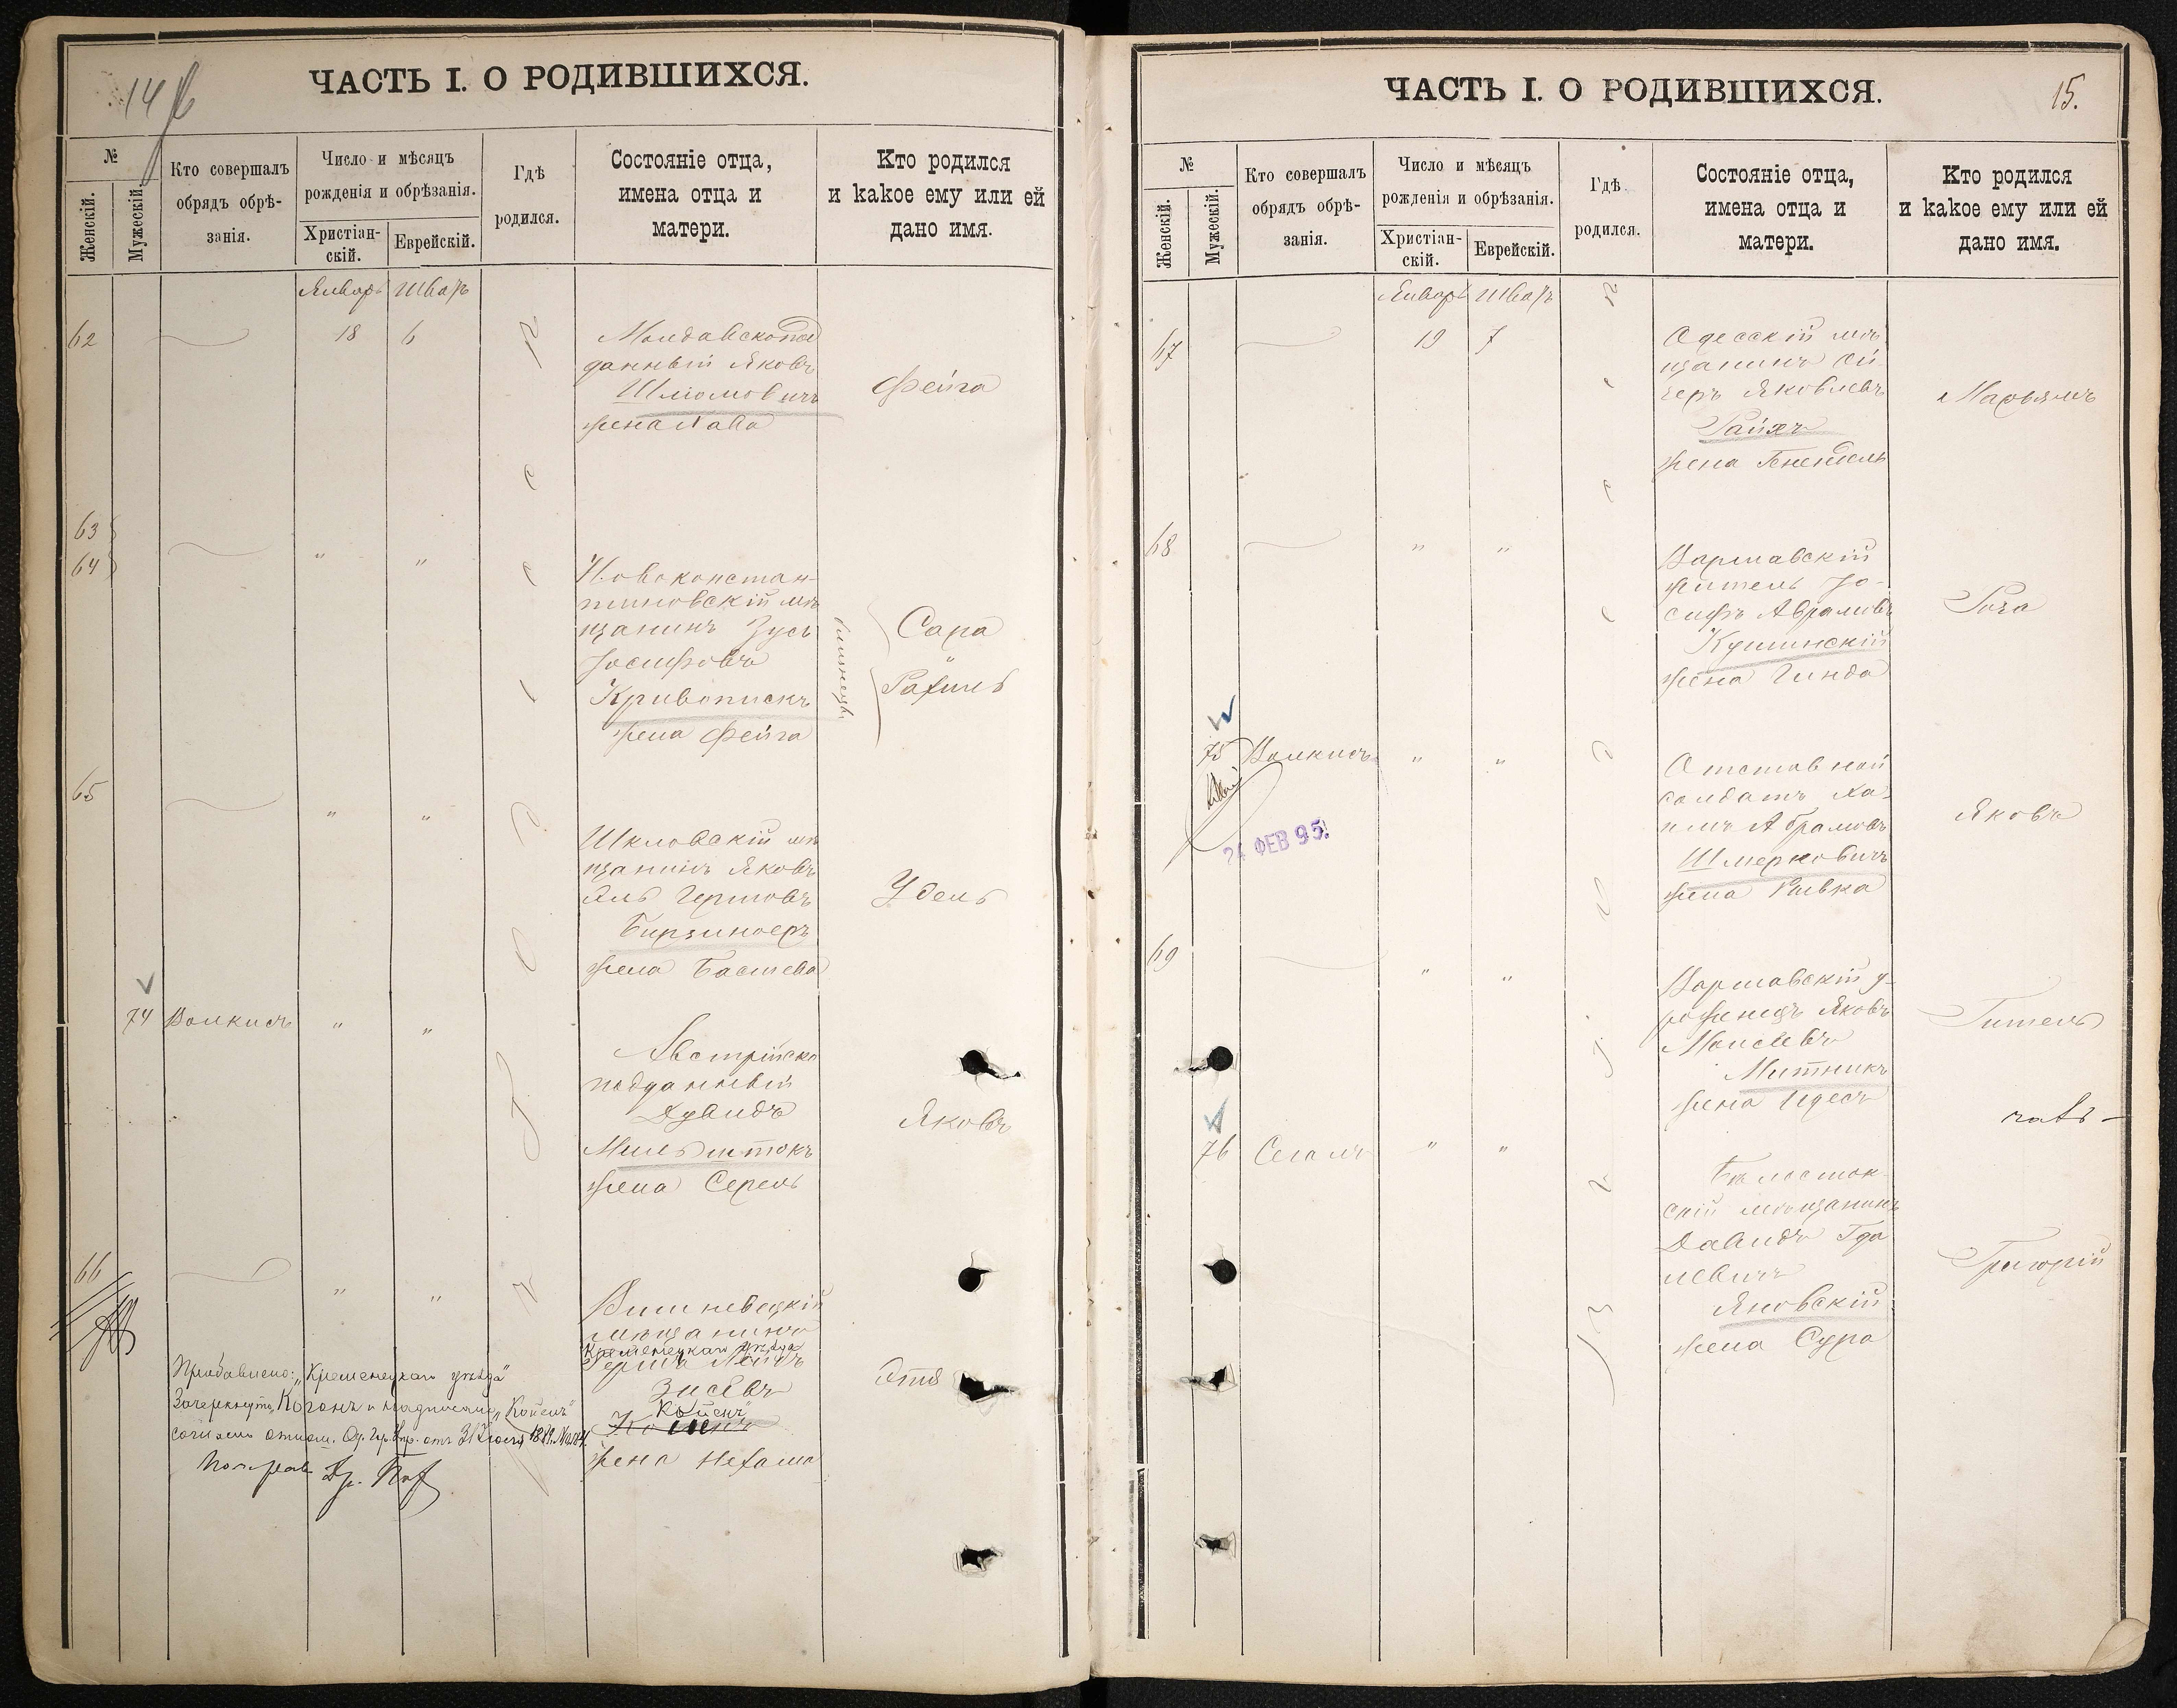 14
ЧАСТЬ I. О РОДИВШИХСЯ.
№
Женскій.
Мужескій.
Кто совершалъ
обрядъ обрѣ-
занія.
Число и мѣсяцъ
рожденія и обрѣзанія.
Христіан-
скій.
Еврейскій.
Гдѣ
родился.
Состояніе отца,
имена отца и
матери.
Кто родился
и какое ему или ей
дано имя.
Январь Шватъ
62 18 6
Молдавскопод
данный Яковъ
Шлiомовичъ
жена Хава
Фейга
63
64 " "
Новоконстан-
тиновскій мѣ
щанинъ Зусь
Іосифовъ
Кривопискъ
жена Фейга
близнецы
Сара
Рахиль
65 " "
Шкловскій мѣ
щанинъ Яковъ
Гершовъ
жена Басшева
Удель
74 Волкисъ " "
Австрійско
подданный
Дувидъ
Мильштокъ
жена Серель
Яковъ
66 " "
Вишневецкій
мѣщанинъ
Кременецкаго уѣзда
Гершъ
Зисевъ
Койенъ
жена Нехама
Этя
Прибавлено: „Кременецкаго уѣзда"
Зачеркнуто Коганъ и надписано „Койенъ"
согласно отнош. Од. Гор. Упр. отъ 31
15.
ЧАСТЬ I. О РОДИВШИХСЯ.
№
Женскій.
Мужескій.
Кто совершалъ
обрядъ обрѣ-
занія.
Число и мѣсяцъ
рожденія и обрѣзанія.
Христіан-
скій.
Еврейскій.
Гдѣ
родился.
Состояніе отца,
имена отца и
матери.
Кто родился
и какое ему или ей
дано имя.
Январь Шватъ
67 19 7
Одесскій мѣ
щанинъ Ой
зеръ Яковлевъ
Райхъ
жена Генендель
Марьямъ
68 " "
Варшавскій
житель Іо-
сифъ Аврамовъ
Кушинскій
жена Гинда
Роза
75 Волкисъ " "
Отставной
солдатъ Ха-
имъ Абрамовъ
Шмерковичъ
жена Ривка
Яковъ
24 ФЕВ 95.
69 " "
Варшавскій у-
роженецъ Яковъ
Моисеевъ
Митникъ
жена Идесъ
Гитель
76 Сегалъ " "
Бѣлосток-
скій мѣщанинъ
Давидъ Гда
левичъ
Яновскій
жена Сура
Григорій